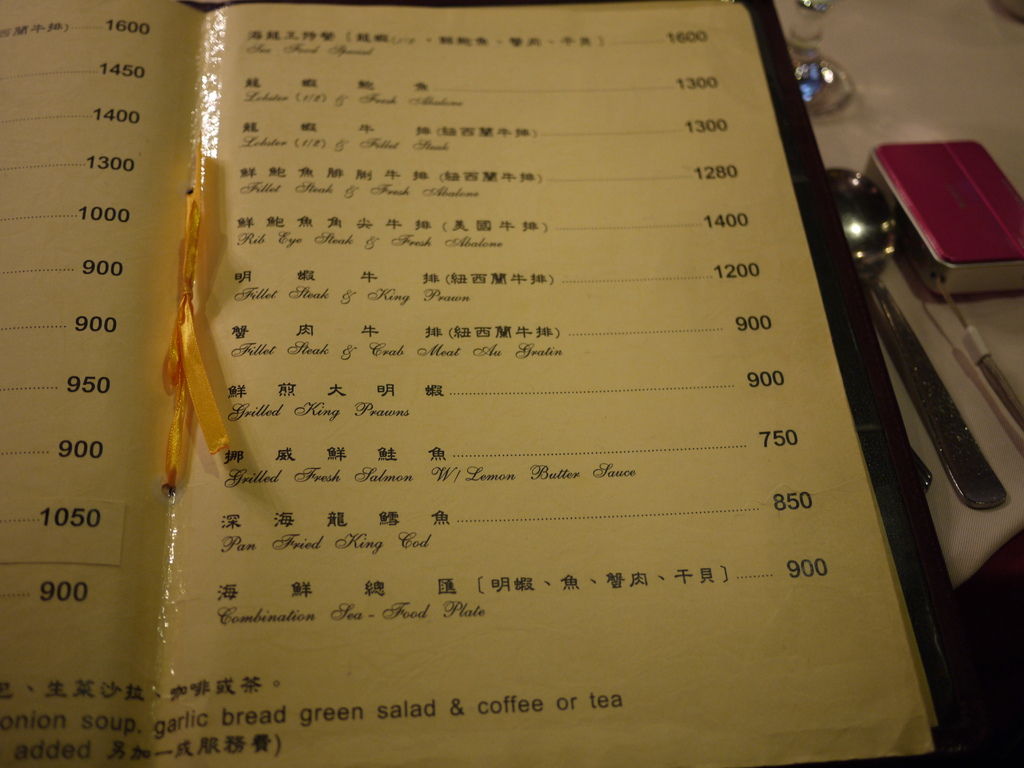 西蘭牛排) 1600
1450
1400
1300
1000
900
900
950
900
1050
900
海龍王特餐〔龍蝦(1/2)、鮑魚、蟹肉、干貝〕 1600
Sea Food Special
龍蝦鮑魚 1300
Lobster (1/2) & Fresh Abalone
龍蝦牛排(紐西蘭牛排) 1300
Lobster (1/2) & Fillet Steak
鮮鮑魚腓利牛排(紐西蘭牛排) 1280
Fillet Steak & Fresh Abalone
鮮鮑魚角尖牛排(美國牛排) 1400
Rib Eye Steak & Fresh Abalone
明蝦牛排(紐西蘭牛排) 1200
Fillet Steak & King Prawn
蟹肉牛排(紐西蘭牛排) 900
Fillet Steak & Crab Meat Au Gratin
鮮煎大明蝦 900
Grilled King Prawns
挪威鮮鮭魚 750
Grilled Fresh Salmon W/ Lemon Butter Sauce
深海龍鱈魚 850
Pan Fried King Cod
海鮮總匯〔明蝦、魚、蟹肉、干貝〕 900
Combination Sea - Food Plate
、生菜沙拉、咖啡或茶。
onion soup, garlic bread green salad & coffee or tea
added 另加一成服務費)